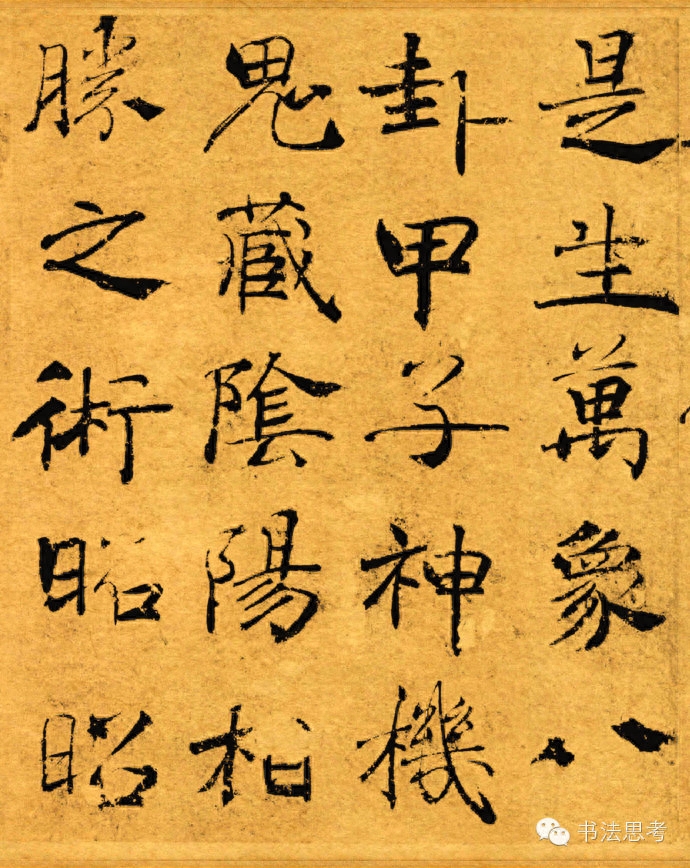 是生萬象八
卦甲子神機
鬼藏陰陽相
勝之術昭昭
书法思考